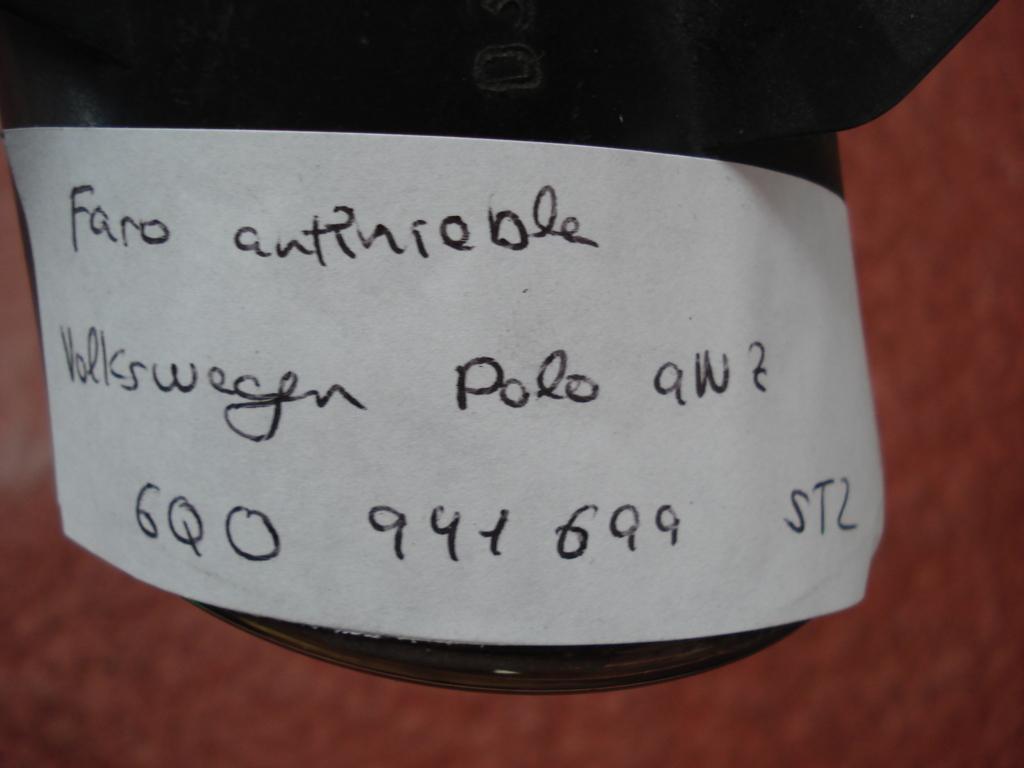 D3
Faro antiniebla
Volkswagen Polo 9N2
6Q0 941 699 ST2